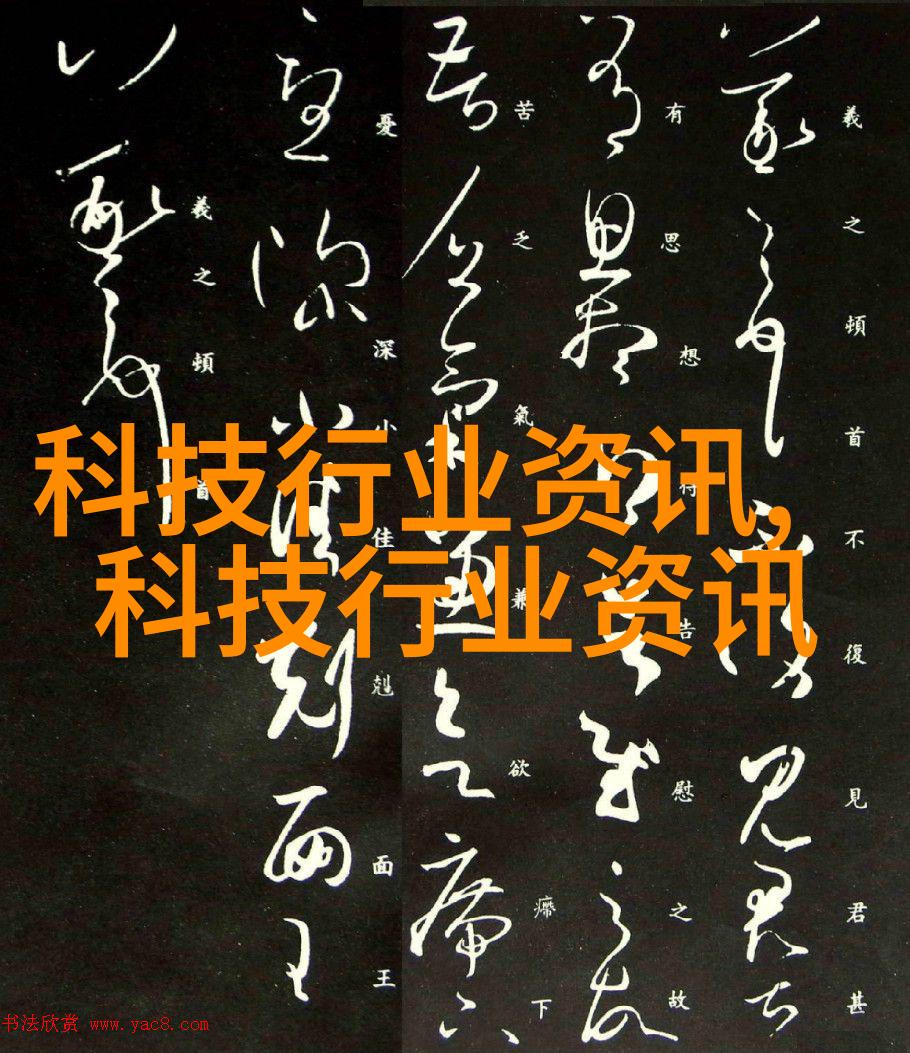 羲之頓首不復見君甚
有思想得告慰之故
苦乏氣兼欲㿃下
憂深小佳剋面王
羲之頓首
科技行业资讯,
科技行业资讯
书法欣赏 www.yac8.com